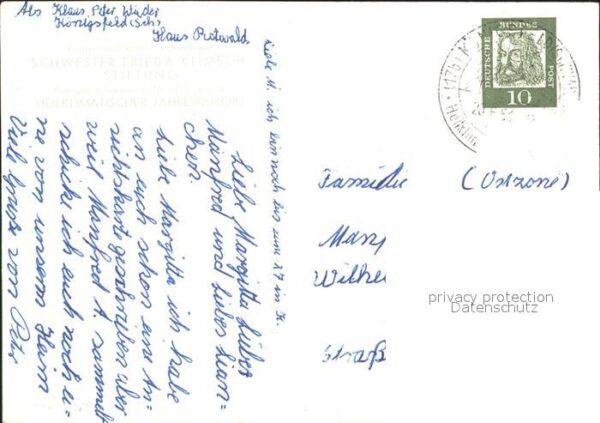 Abs Klaus Peter
Königsfeld (Sch)
Haus Rotwald
SCHWESTER FRIEDA KLIMSCH
STIFTUNG
HEILKLIMATISCHER JAHRESKURORT
DEUTSCHE BUNDES POST
10
(17b)
Liebe M. ich bin noch bis zum 27 in K.
Liebe Margitta Lieber
Manfred und liebes
chen.
Liebe Margitta ich habe
an euch schon eine An=
sichtskarte geschrieben aber
weil Manfred A. sammelt
schicke ich euch noch ei=
ne von unserem Heim
Viele Grüße von Peter
Familie (Ostzone)
Straß
privacy protection
Datenschutz